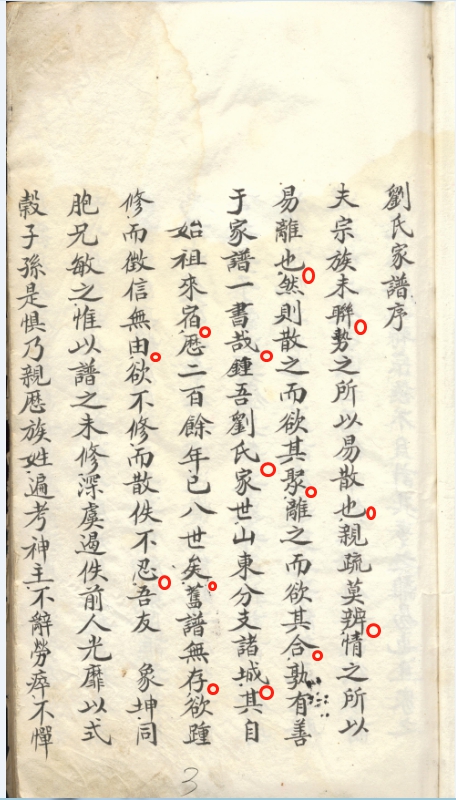 劉氏家譜序
夫宗族未聯勢之所以易散也親疏莫辨情之所以
易離也然則散之而欲其聚離之而欲其合孰有善
于家譜一書哉鍾吾劉氏家世山東分支諸城其自
始祖來宿歷二百餘年已八世矣舊譜無存欲踵
修而徵信無由欲不修而散佚不忍吾友 象坤同
胞兄敏之惟以譜之未修深虞過佚前人光靡以式
穀子孫是懼乃親歷族姓遍考神主不辭勞瘁不憚
3